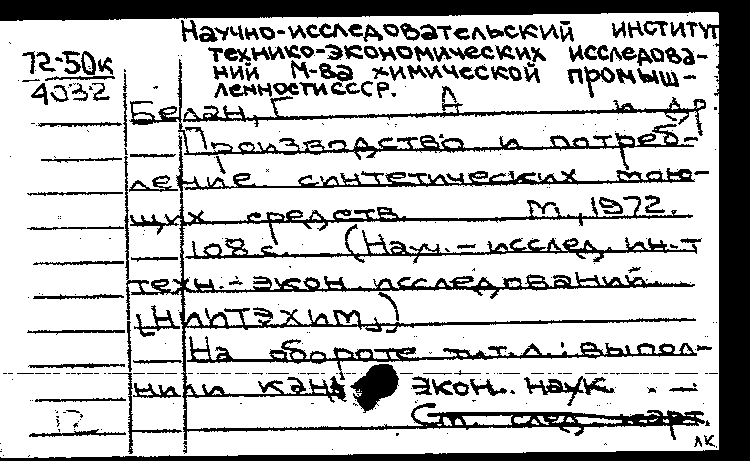 Научно-исследовательский институт
технико-экономических исследова-
72-50к
ний М-ва химической промыш-
4032
ленности СССР.
Белан, Г А и др.
Производство и потреб-
ление синтетических мою-
щих средств. М., 1972.
108 с. (Науч.-исслед. ин-т
техн.-экон. исследований
[НИИТЭхим])
На обороте тит.л.: выпол-
нили канд экон. наук. . —
12
Ст. след. карт.
лк